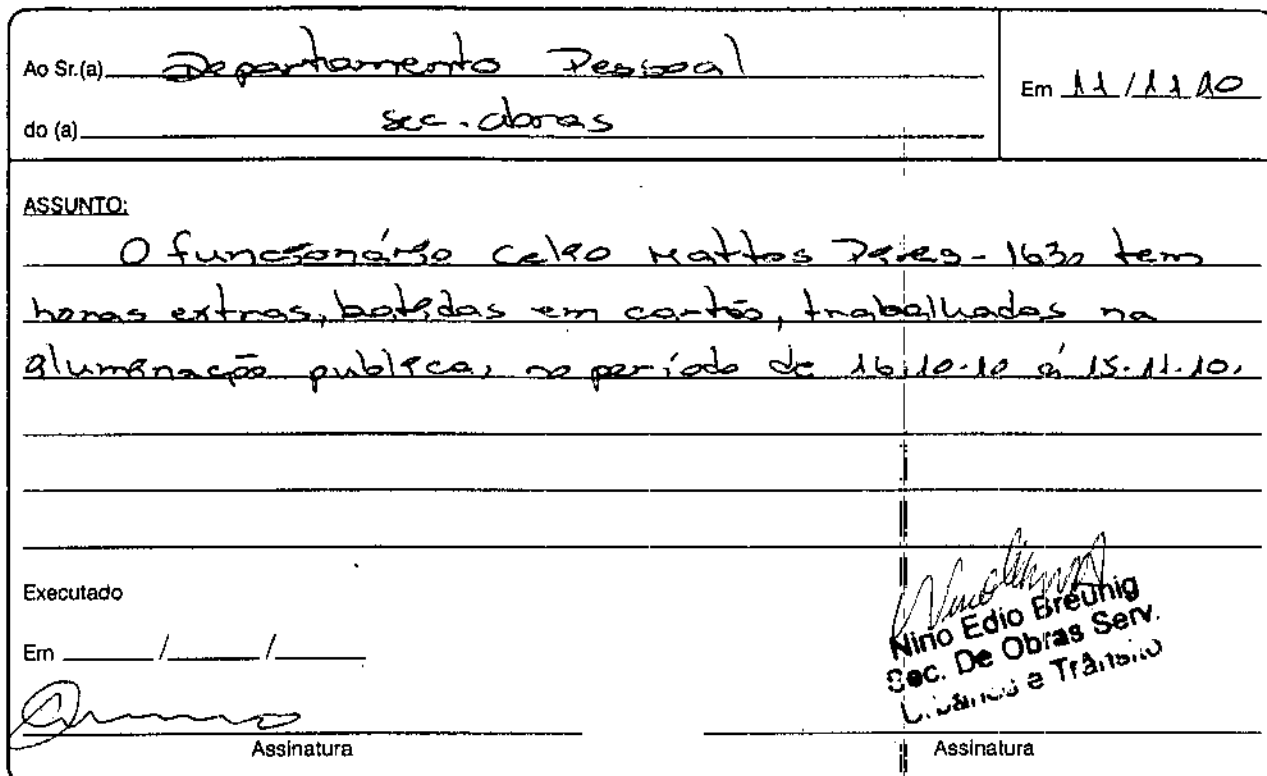 Ao Sr.(a) Departamento Pessoal
Em 11/11 10
do (a) Sec. obras
ASSUNTO:
O funcionário Celso Mattos Peres - 1630 tem
horas extras, batidas em cartão, trabalhadas na
iluminação publica, no período de 16.10.10 á 15.11.10.
Executado
Em ____/____/____
Nino Edio Breunig
Sec. De Obras Serv.
Urbanos e Trânsito
Assinatura
Assinatura